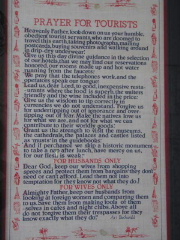 PRAYER FOR TOURISTS
Heavenly Father, look down on us your humble,
obedient tourist servants, who are doomed to
travel this earth, taking photographs, mailing
postcards, buying souvenirs and walking around
in drip-dry underwear.
Give us this day divine guidance in the selection
of our hotels, that we may find our reservations
honored, our rooms made up and hot water
running from the faucets.
We pray that the telephones work, and the
operators speak our tongue.
Lead us, dear Lord, to good, inexpensive restau-
rants where the food is superb, the waiters
friendly and the wine included in the price.
Give us the wisdom to tip correctly in
currencies we do not understand. Forgive us
for undertipping out of ignorance and over-
tipping out of fear. Make the natives love us
for what we are, and not for what we can
contribute to their worldly goods.
Grant us the strength to visit the museums,
the cathedrals, the palaces and castles listed
as "musts" in the guidebooks.
And if perchance we skip a historic monument
to take a nap after lunch, have mercy on us,
for our flesh is weak.
FOR HUSBANDS ONLY
Dear God, keep our wives from shopping
sprees and protect them from bargains they don't
need or can't afford. Lead them not into
temptation for they know not what they do.
FOR WIVES ONLY
Almighty Father, keep our husbands from
looking at foreign women and comparing them
to us. Save them from making fools of them-
selves in cafes and night clubs. Above all,
do not forgive them their trespasses for they
know exactly what they do.